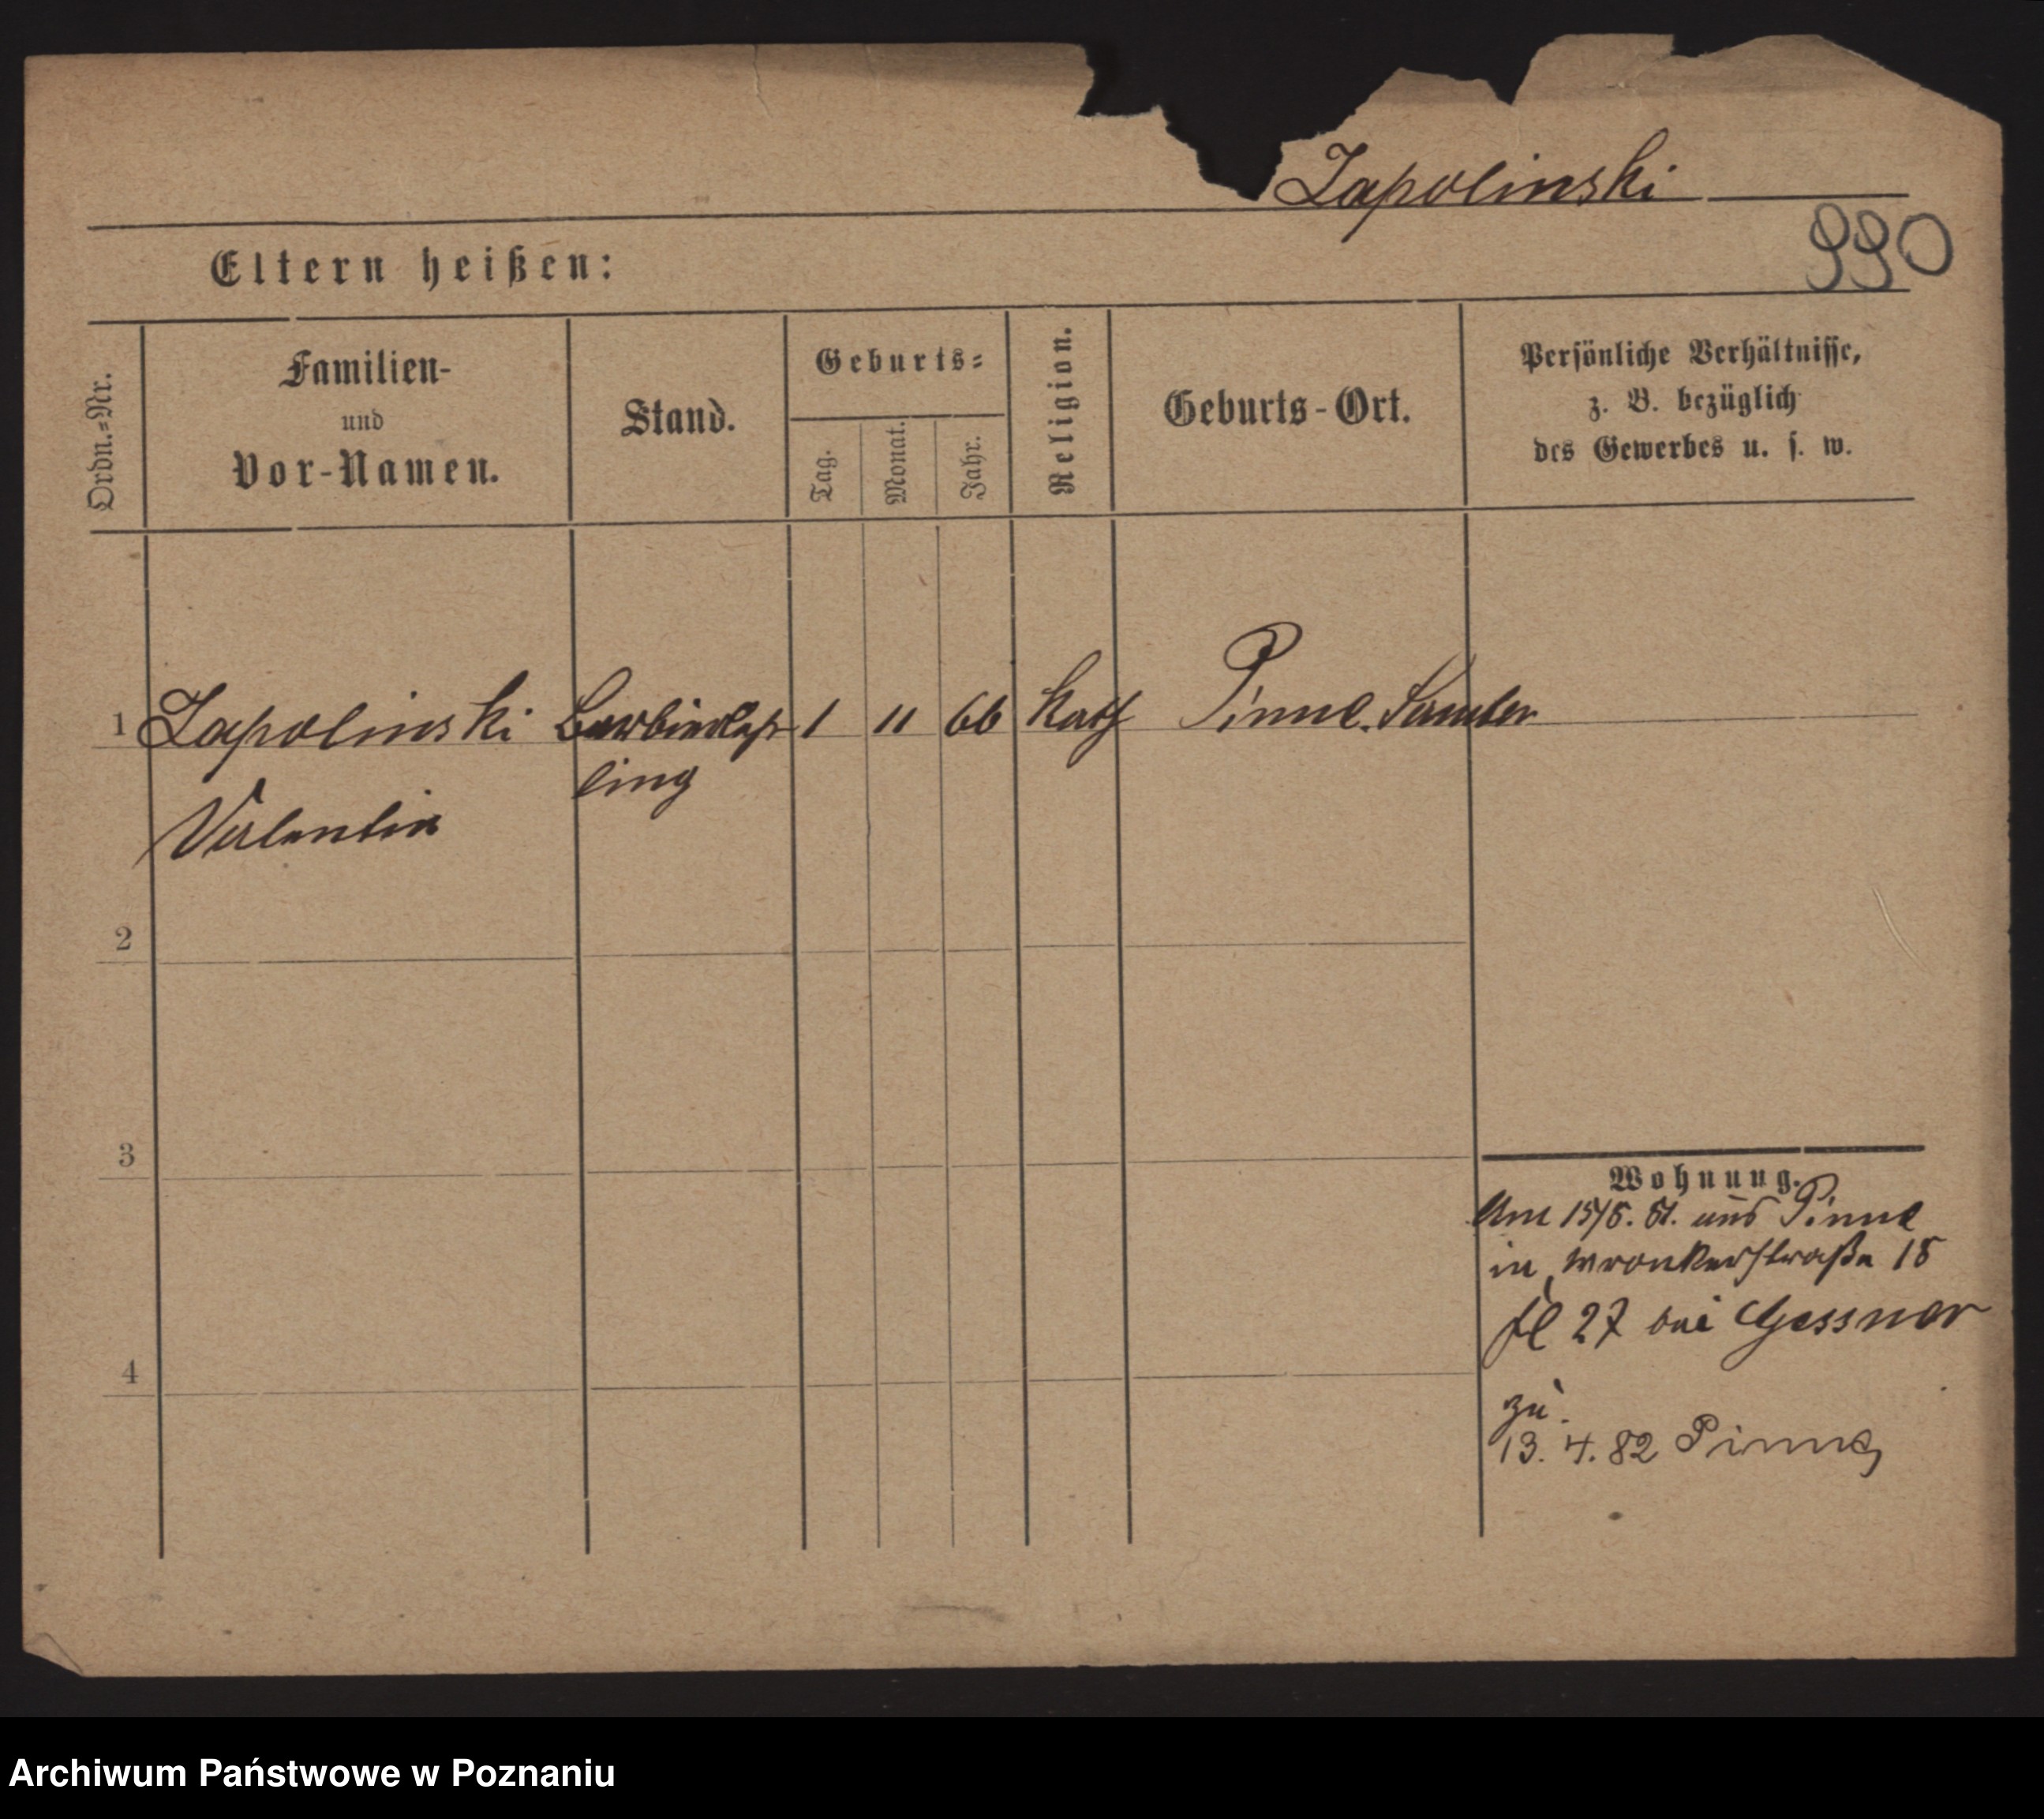 Zapolinski
990
Eltern heißen:
Ordn.=Nr.
Familien-
und
Vor-Namen.
Stand.
Geburts=
Tag.
Monat.
Jahr.
Religion.
Geburts-Ort.
Persönliche Verhältnisse,
z. B. bezüglich
des Gewerbes u. s. w.
1 Zapolinski Barbierlehr 1 11 66 Kath Pinne. Samter
ling
Valentin
2
3
4
Wohnung.
Am 15/5. 81. aus Pinne
in Wronkerstraße 18
bei Gessner
zu.
13. 4. 82 Pinne
Archiwum Państwowe w Poznaniu